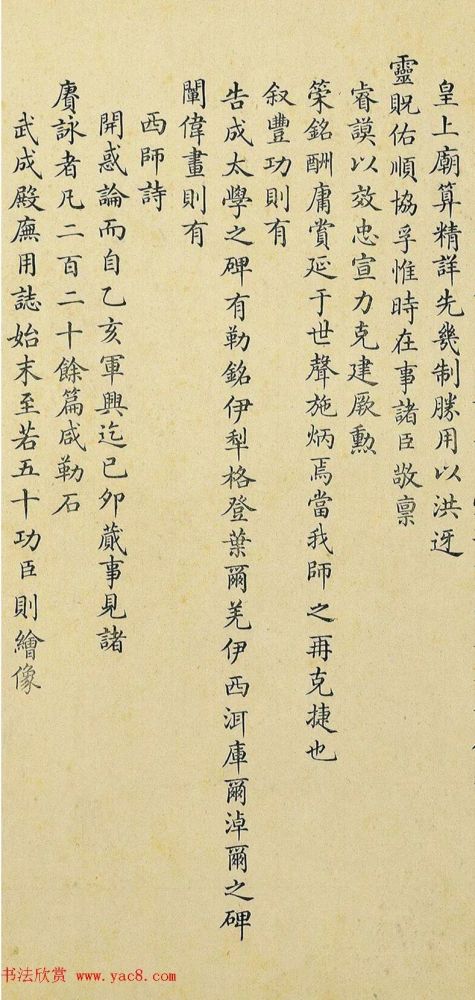 皇上廟算精詳先幾制勝用以洪迓
靈貺佑順協孚惟時在事諸臣敬禀
睿謨以效忠宣力克建厥勲
策銘酬庸賞延于世聲施炳焉當我師之再克捷也
叙豐功則有
告成太學之碑有勒銘伊犁格登葉爾羌伊西洱庫爾淖爾之碑
闡偉畫則有
西師詩
開惑論而自乙亥軍興迄己卯蕆事見諸
賡詠者凡二百二十餘篇咸勒石
武成殿廡用誌始末至若五十功臣則繪像
书法欣赏 www.yac8.com